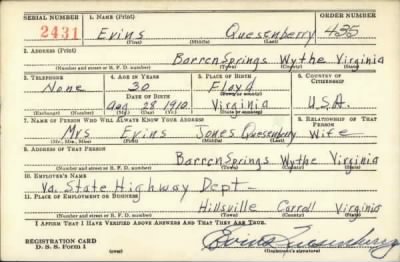 SERIAL NUMBER 1. NAME (Print) ORDER NUMBER
2431 Evins Quesenberry 435
(First) (Middle) (Last)
2. ADDRESS (Print)
Barren Springs Wythe Virginia
(Number and street or R. F. D. number) (Town) (County) (State)
3. TELEPHONE 4. AGE IN YEARS 5. PLACE OF BIRTH 6. COUNTRY OF CITIZENSHIP
None 30 Floyd
(Town or county)
DATE OF BIRTH
28 1910 Virginia U.S.A.
(Exchange) (Number) (Mo.) (Day) (Yr.) (State or country)
7. NAME OF PERSON WHO WILL ALWAYS KNOW YOUR ADDRESS 8. RELATIONSHIP OF THAT PERSON
Mrs Evins Jones Quesenberry Wife
(Mr., Mrs., Miss) (First) (Middle) (Last)
9. ADDRESS OF THAT PERSON
Barren Springs Wythe Virginia
(Number and street or R. F. D. number) (Town) (County) (State)
10. EMPLOYER'S NAME
Va. State Highway Dept-
11. PLACE OF EMPLOYMENT OR BUSINESS
Hillsville Carroll Virginia
(Number and street or R. F. D. number) (Town) (County) (State)
I AFFIRM THAT I HAVE VERIFIED ABOVE ANSWERS AND THAT THEY ARE TRUE.
REGISTRATION CARD
D. S. S. Form 1 (over) Evins Quesenberry
(Registrant's signature)